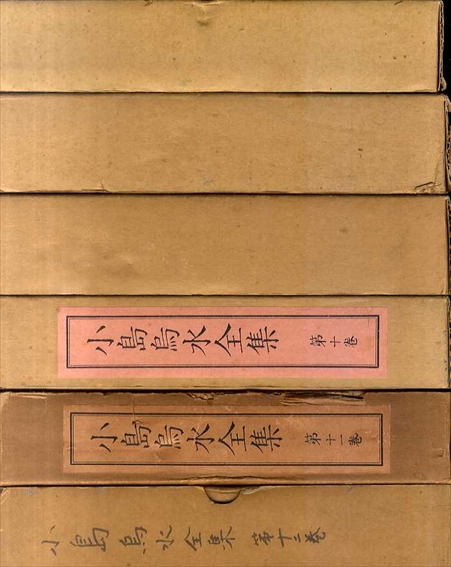 小島烏水全集 第十巻
小島烏水全集 第十一巻
小島烏水全集 第十二巻